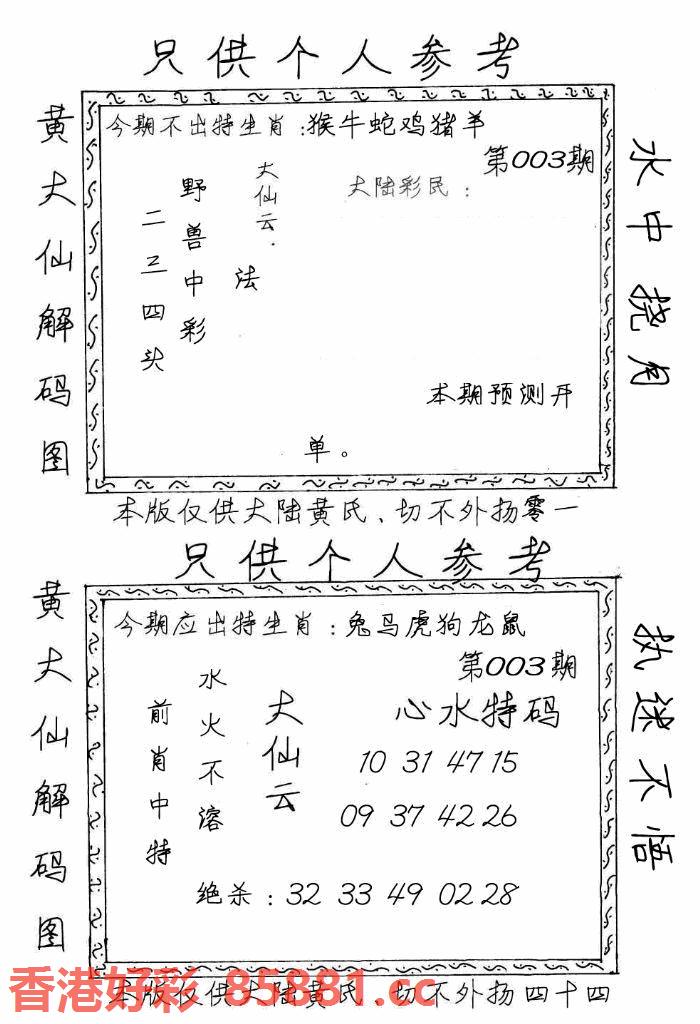 只供个人参考
黄大仙解码图
今期不出特生肖：猴牛蛇鸡猪羊
第003期
大陆彩民：
大仙云．
法
野兽中彩
二三四头
本期预测开
单。
水中挠月
本版仅供大陆黄氏、切不外扬零一
只供个人参考
黄大仙解码图
今期应出特生肖：兔马虎狗龙鼠
第003期
心水特码
大仙云
水火不溶
前肖中特
10 31 47 15
09 37 42 26
绝杀：32 33 49 02 28
执迷不悟
本版仅供大陆黄氏、切不外扬四十四
香港好彩 85881.cc